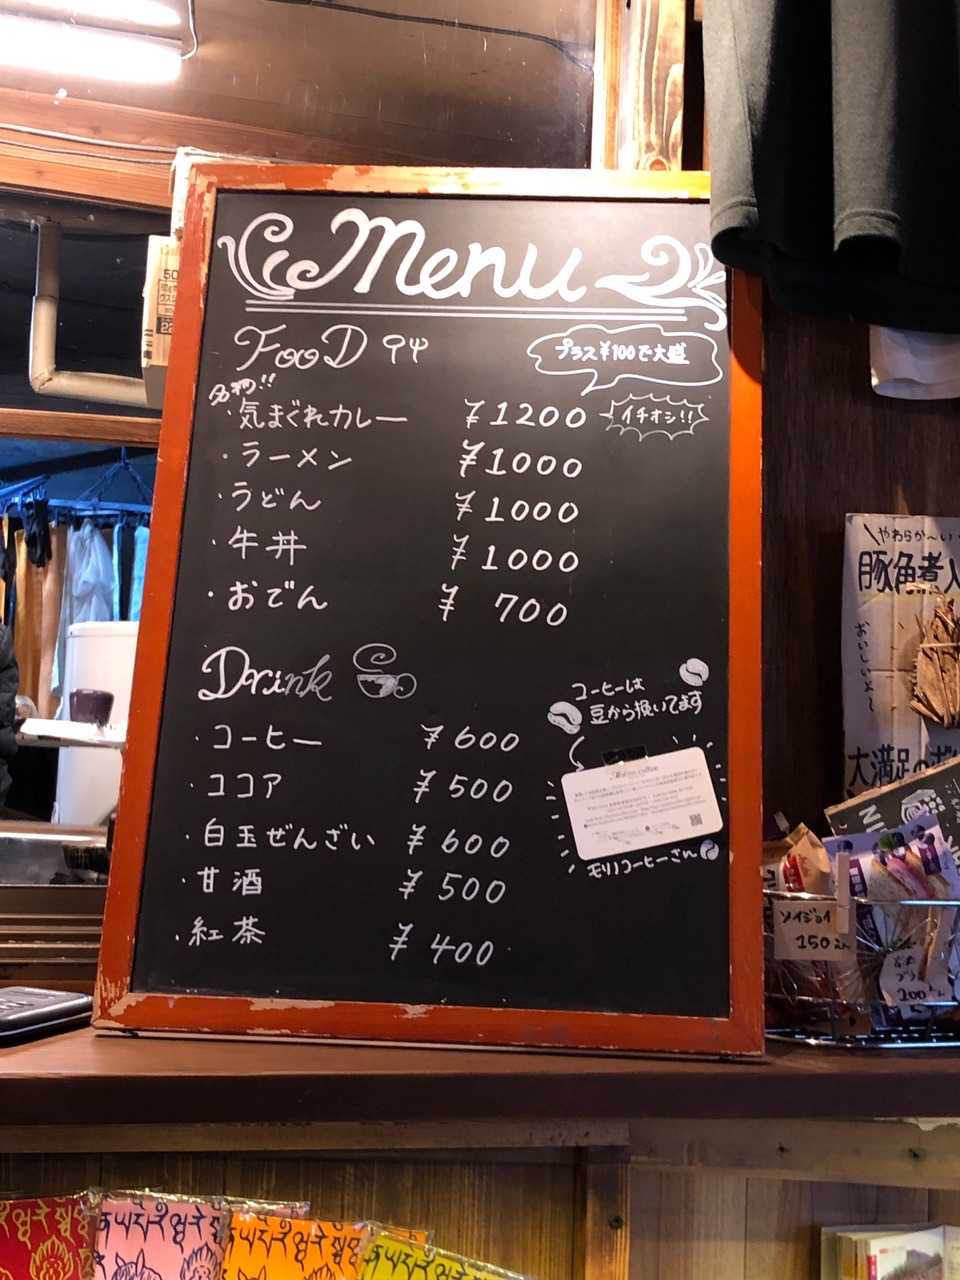 Menu
FooD
プラス¥100で大盛
名物!!
・気まぐれカレー ¥1200
イチオシ!!
・ラーメン ¥1000
・うどん ¥1000
・牛丼 ¥1000
・おでん ¥700
Drink
コーヒーは
豆から挽いてます
・コーヒー ¥600
・ココア ¥500
・白玉ぜんざい ¥600
・甘酒 ¥500
・紅茶 ¥400
モリノコーヒーさん
\やわらか〜い
豚角煮
おいしいよ〜
大満足の
ソイジョイ
150えん